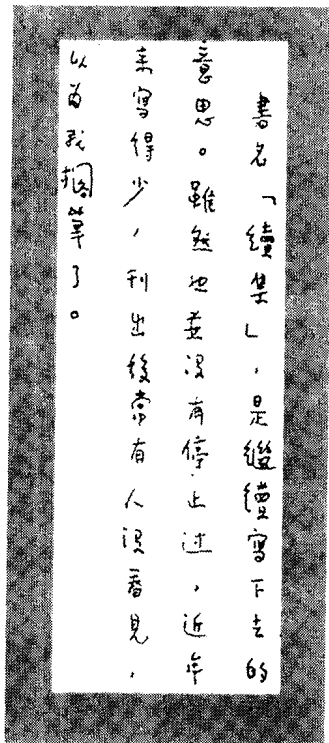 書名「續集」，是繼續寫下去的
意思。雖然也並没有停止过，近年
来寫得少，刊出後常有人没看見，
以為我擱筆了。